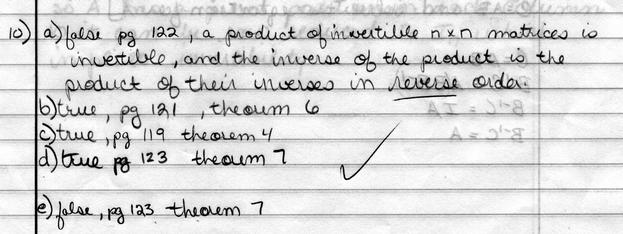 10) a) false pg 122, a product of invertible n×n matrices is
invertible, and the inverse of the product is the
product of their inverses in reverse order.
b) true, pg 121, theorum 6
c) true, pg 119 theorem 4
d) true pg 123 theorum 7
e) false, pg 123 theorem 7